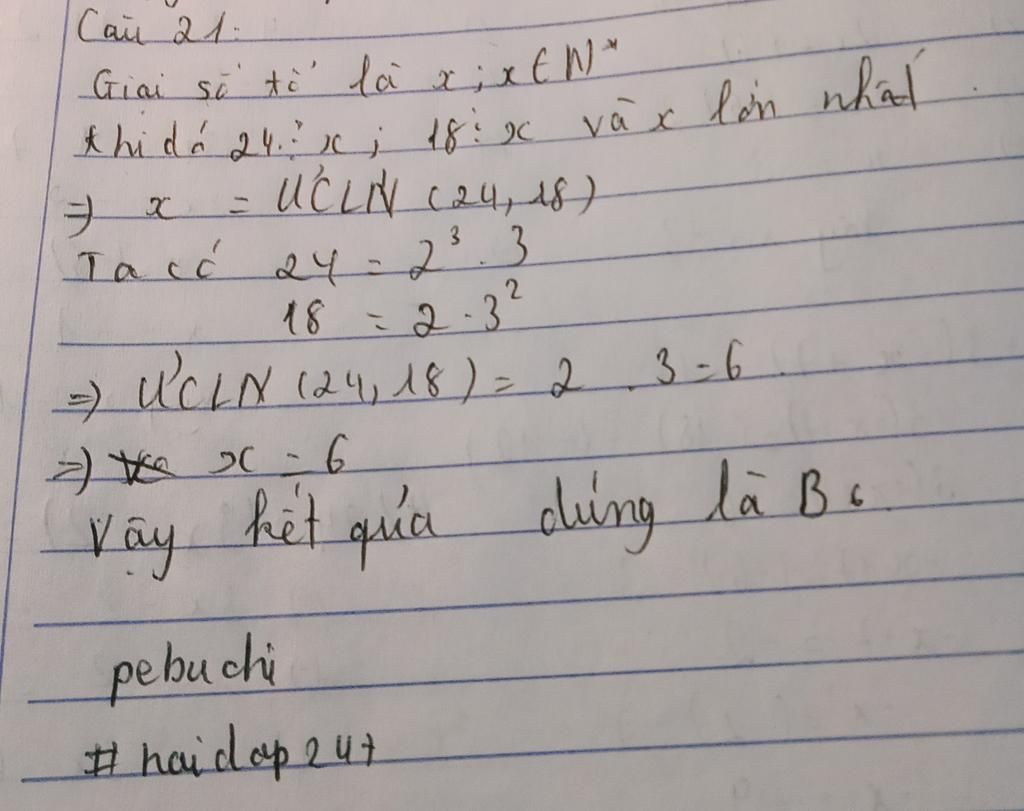 Câu 21:
Giai số tổ là x; x ∈ N*
khi đó 24 ⋮ x; 18 ⋮ x và x lớn nhất.
=> x = ƯCLN (24, 18)
Ta có 24 = 2³ . 3
18 = 2 . 3²
=> ƯCLN (24, 18) = 2 . 3 = 6
=> x = 6
Vậy kết quả đúng là B 6.
pebuchi
# hoidap 247